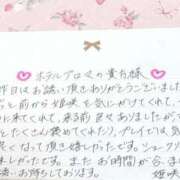 ホテルプロムの貴方様
昨日はお誘い頂きありがとうございました
と前から姫咲を気にかけてくれて
くれて、来る前 々ありましたが
とたくさん褒めてくれたり、プレイでは気
良くなって頂き嬉しかったです。シュークリ
しかったです。またお時間が合えば
お待ちしております。
姫咲